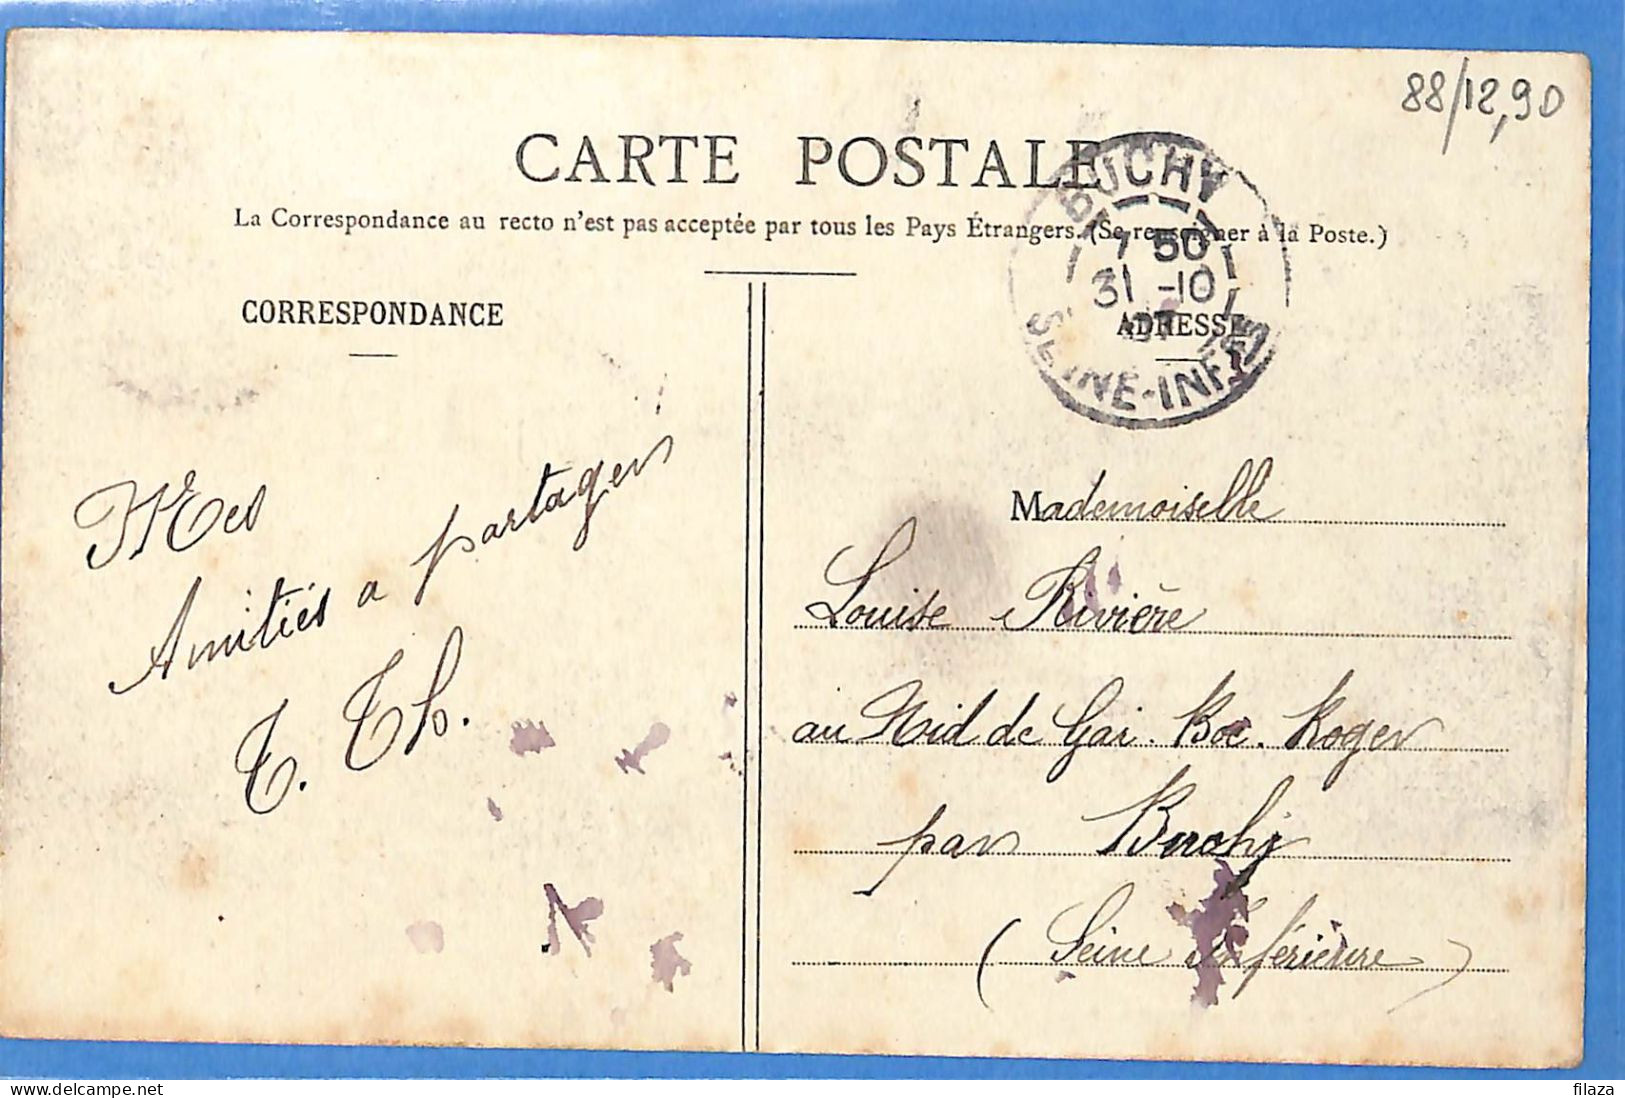 88/12,90
CARTE POSTALE
La Correspondance au recto n'est pas acceptée par tous les Pays Étrangers. (Se renseigner à la Poste.)
BUCHY
7 50
31 -10
07
SEINE-INFRE
CORRESPONDANCE
ADRESSE
Mes
Amitiés a partager
T. Th.
Mademoiselle
Louise Rivière
au Nid de Gai. Boc. Roger
par Buchy
(Seine Inférieure)
filaza